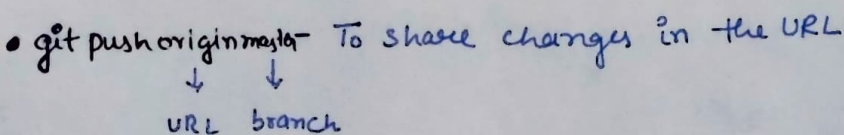 • git push origin master - To share changes in the URL
↓ ↓
URL branch